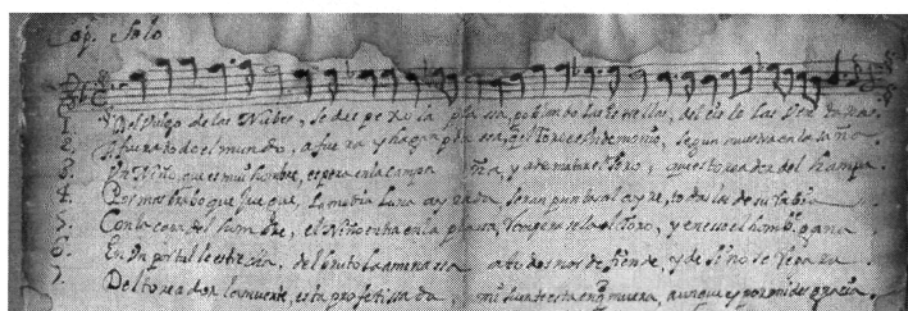 Cop. Solo.
1. Del Vulgo de las Nubes, se despexo la plassa, poblento las estrellas, del cielo las ventanas.
2. A fuera todo el mundo, a fuera y hagan plassa, el Toro es el demonio, segun muestra en la saña.
3. Un Niño, que es mui hombre, espera en la campaña, y a de matar el Toro, que es toreador del hampa.
4. Por mas trabo que juegue, La media Luna ayrada, seran puntas al ayre, todas las de su rabia
5. Con la capa del hombre, el Niño entra en la plassa, Rompera sela el Toro, y en eso el hombe. gana
6. En un portal le espera, del bruto la amenassa a todos nos defiende, y de si no se repara
7. Del toreador la muerte, esta profetissada, mi suerte esta en q̃ muera, aunque es por mi desgracia.